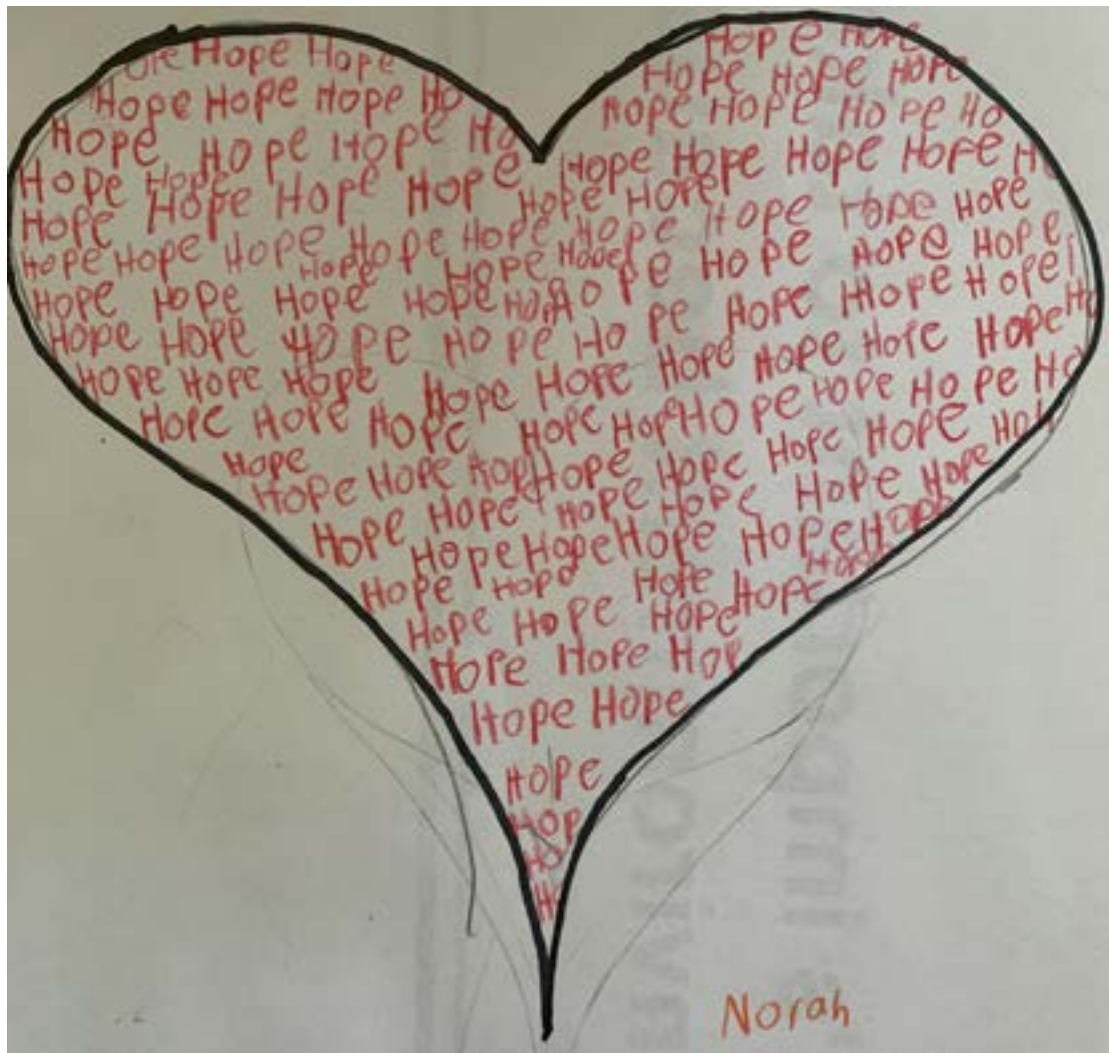 ope Hope Hope Hope Hope
Hope Hope Hope
Hope Hope Hope Ho Hope Hope Hope Ho
Hope Hope Hope Ho
Hope Hope Hope Hope Hope H
Hope Hope Hope Hope Hope Hope
Hope Hope Hope Hope Hope Hope Hope Hope Hope
Hope Hope Hope Hope Hope Hope Hope Hope Hope
Hope Hope Hope Hope Hop Hope Hope Hope Hope
Hope Hope Hope Hope Hope Hope Hope Hope Hope Ho
Hope Hope Hope Hope Hope Hope Hope Hope Hope
Hope Hope Hope Hope Hope Hope Hope Hope Ho
Hope
Hope Hope Hope Hope Hope Hope Hope Ho
Hope Hope Hope Hope Hope Hope
Hope Hope Hope Hope Hope
Hope Hope Hope Hope
Hope Hope Hope Hope
Hope Hope Hop
Hope Hope
Hope
Hop
Ho
H
Norah